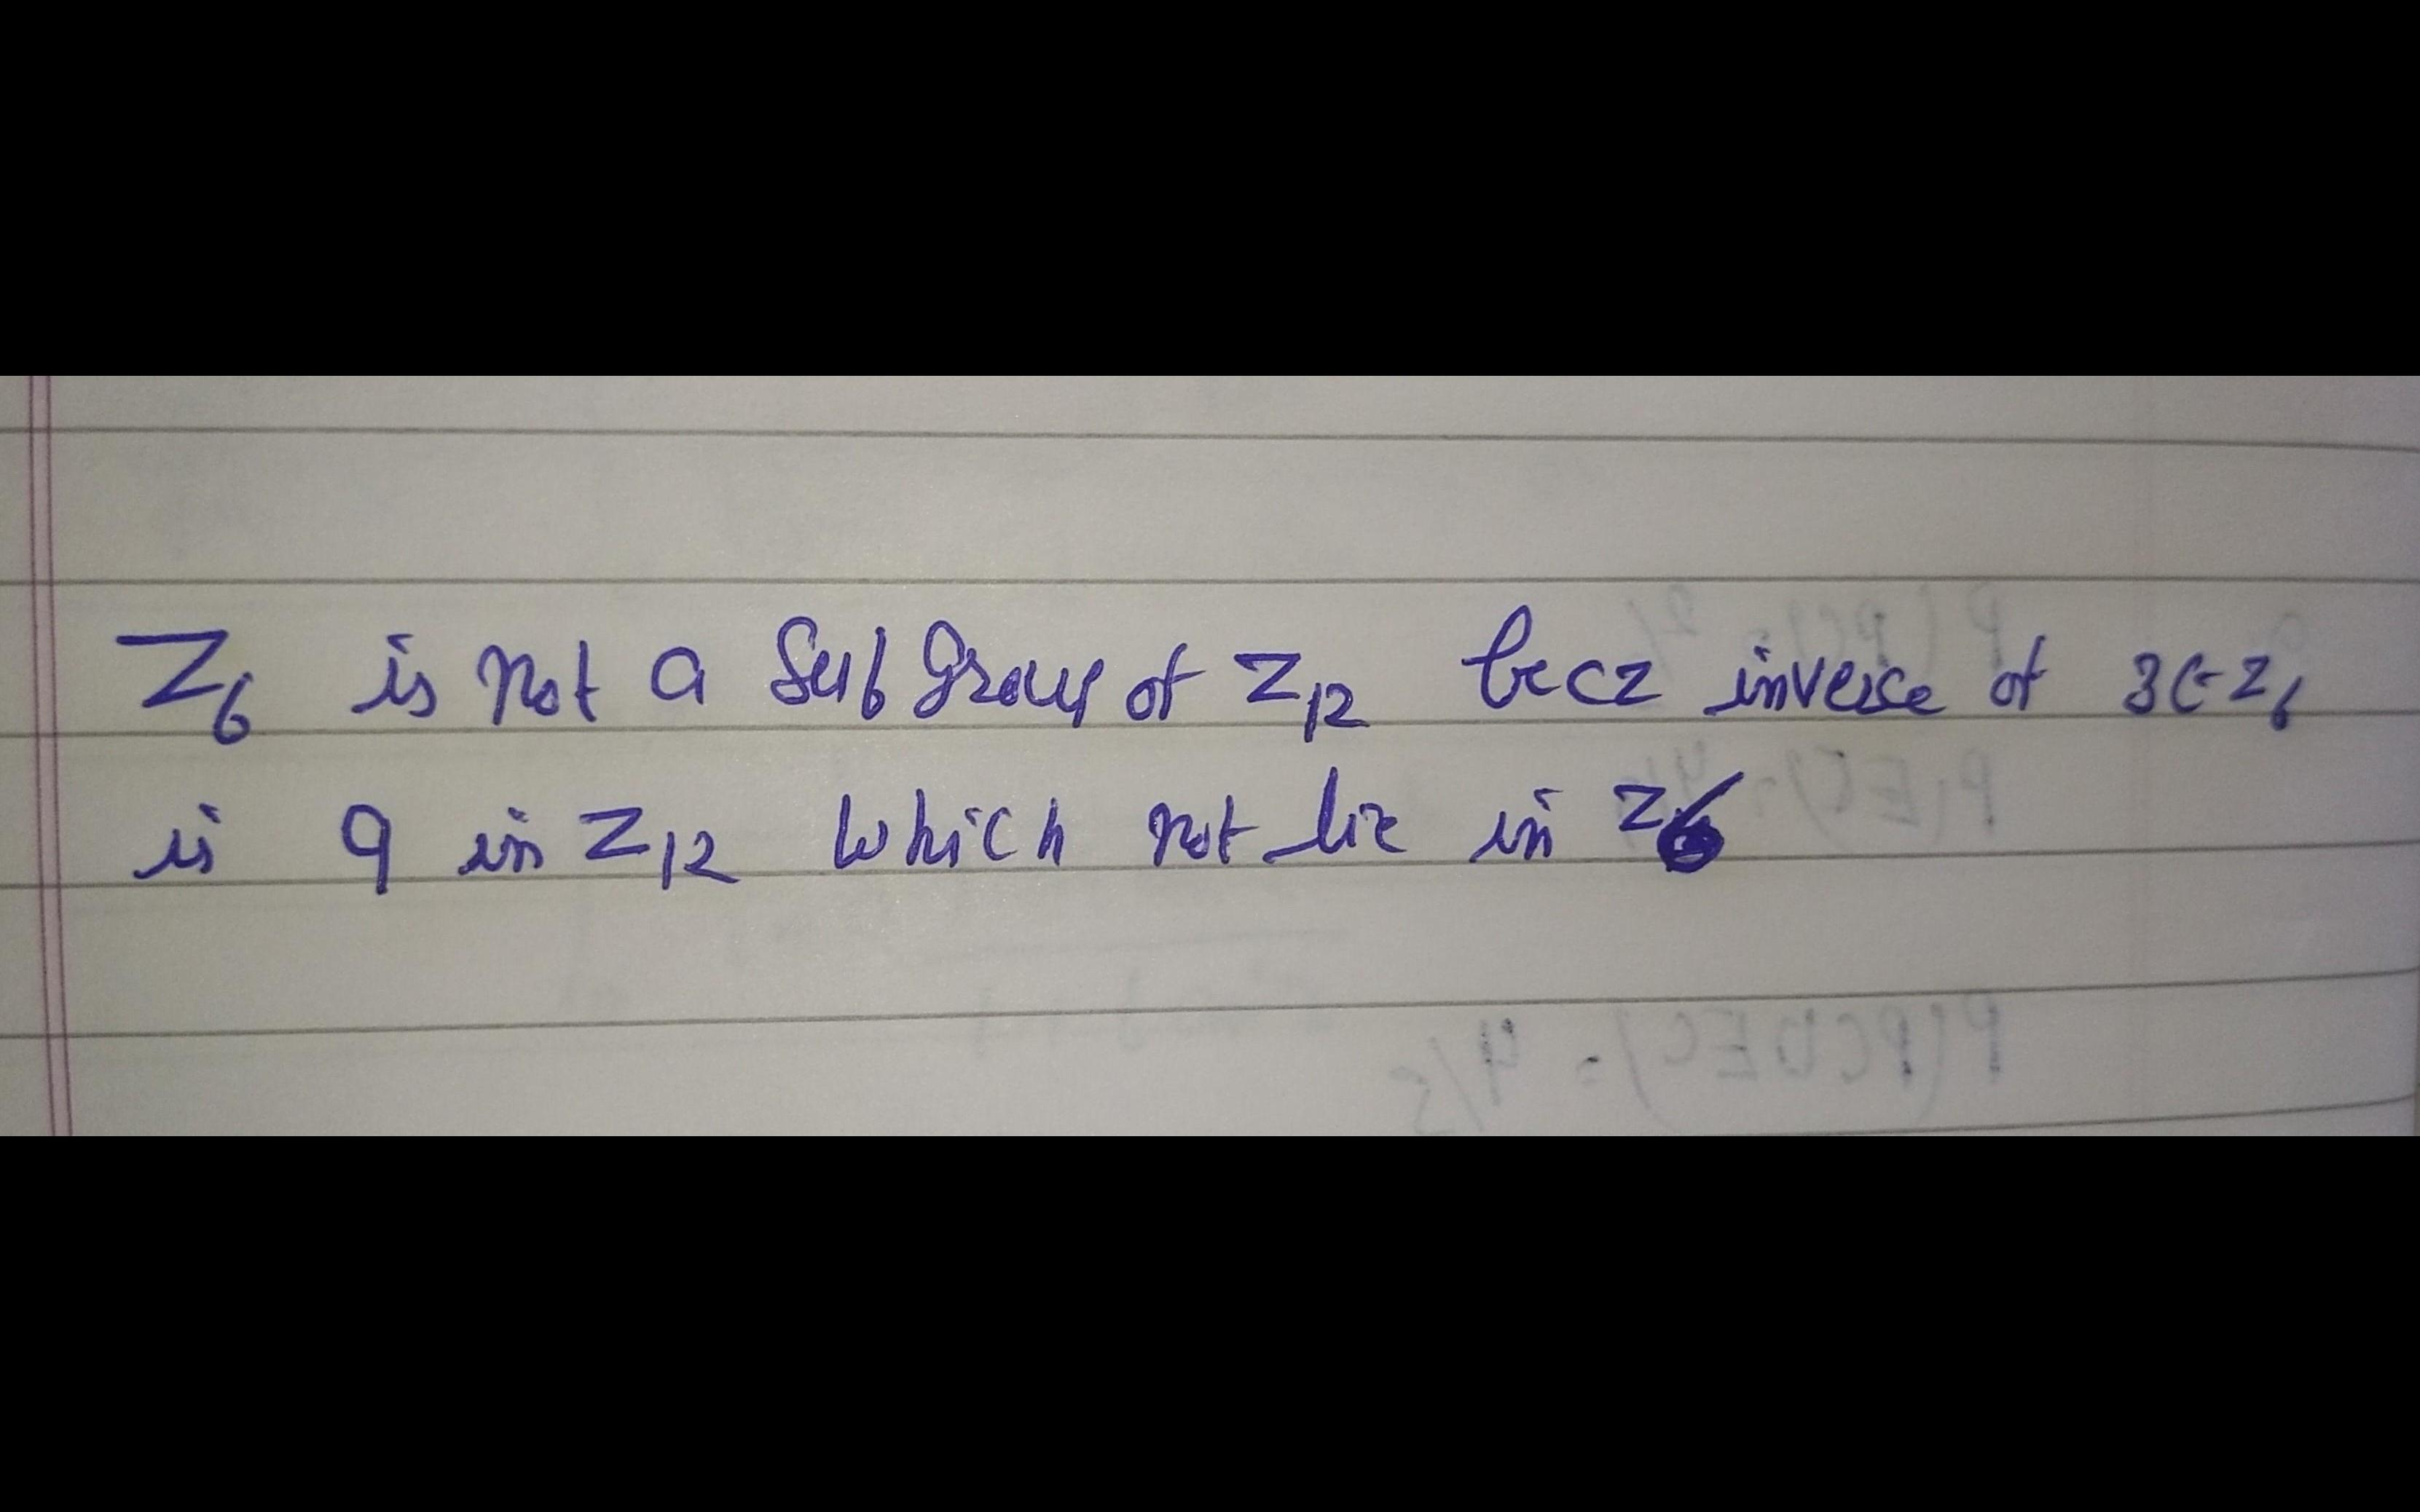 Z6 is not a Subgroup of Z12 becz inverse of 3∈Z6
is 9 in Z12 which not lie in Z6